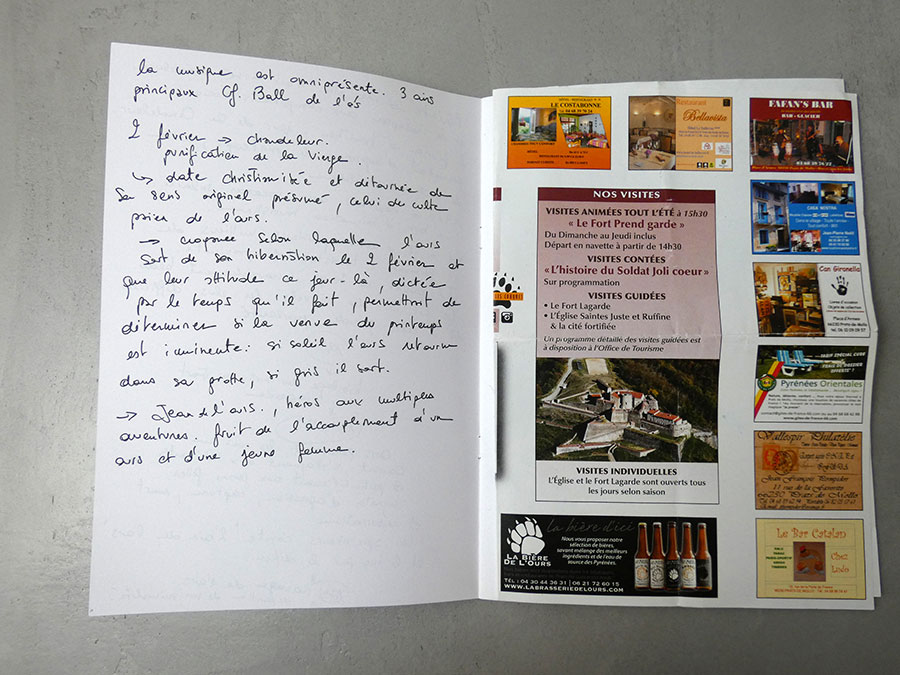 la musique est omniprésente. 3 airs
principaux Cf. Ball de l'ós
2 février → chandeleur.
purification de la Vierge.
↳ date christianisée et détournée de
son sens originel présumé, celui de culte
païen de l'ours.
→ croyance selon laquelle l'ours
sort de son hibernation le 2 février et
que leur attitude ce jour-là, dictée
par le temps qu'il fait, permettront de
déterminer si la venue du printemps
est imminente: si soleil l'ours retourne
dans sa grotte, si gris il sort.
→ Jean de l'ours, héros aux multiples
aventures. fruit de l'accouplement d'un
ours et d'une jeune femme.
LE COSTABONNE
Restaurant
Bellavista
FAFAN'S BAR
BAR - GLACIER
NOS VISITES
VISITES ANIMÉES TOUT L'ÉTÉ à 15h30
« Le Fort Prend garde »
Du Dimanche au Jeudi inclus
Départ en navette à partir de 14h30
VISITES CONTÉES
«L'histoire du Soldat Joli coeur»
Sur programmation
VISITES GUIDÉES
• Le Fort Lagarde
• L'Église Saintes Juste et Ruffine
& la cité fortifiée
Un programme détaillé des visites guidées est
à disposition à l'Office de Tourisme
VISITES INDIVIDUELLES
L'Église et le Fort Lagarde sont ouverts tous
les jours selon saison
CASA NOSTRA
Can Gironella
Pyrénées Orientales
Vallespir Philatélie
Jean François Pompidor
Le Bar Catalan
Chez
Ludo
la bière d'ici
Nous vous proposer notre
sélection de bières,
savant mélange des meilleurs
ingrédients et de l'eau de
source des Pyrénées.
LA BIÈRE
DE L'OURS
TÉL : 04 30 44 38 31 | 06 21 72 60 15
WWW.LABRASSERIEDELOURS.COM